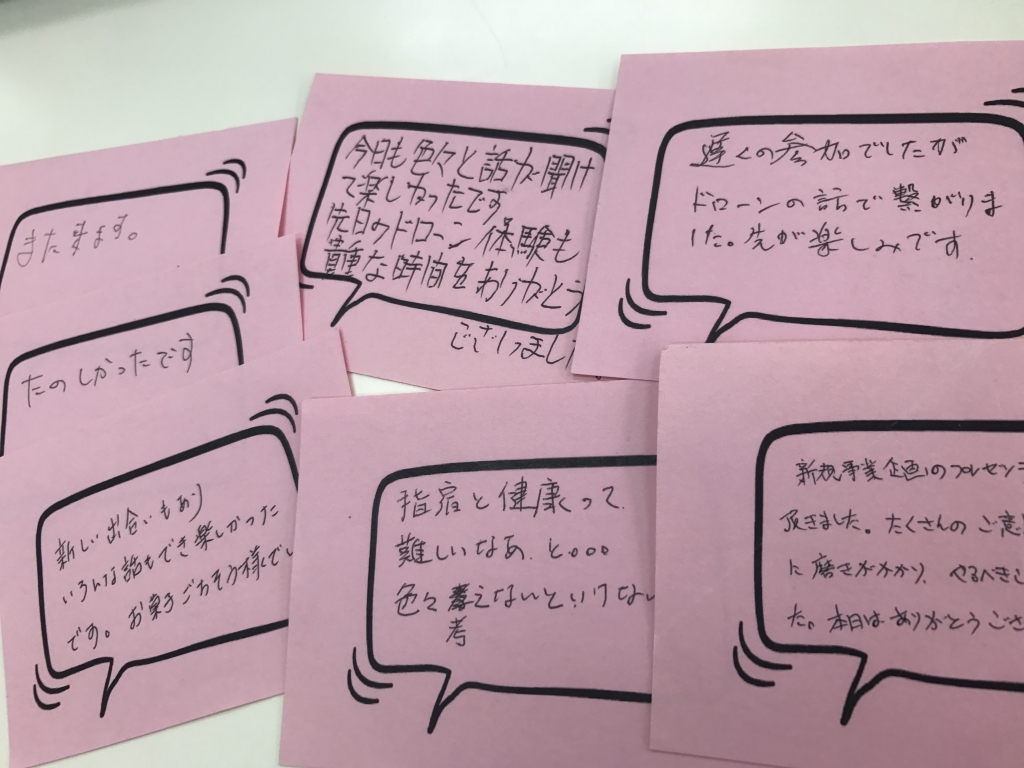 また来ます。
たのしかったです
新しい出合いもあり
いろんな話もでき楽しかった
です。お菓子ごちそう様でし
今日も色々と話が聞け
て楽しかったです
先日のドローン体験も
貴重な時間をありがとう
ございました
遅くの参加でしたが
ドローンの話で繋がりま
した。先が楽しみです.
指宿と健康って、
難しいなあ、と。。。
色々考えないといけない
考
新規事業企画のプレゼンを
頂きました。たくさんのご意
に磨きがかかり、やるべきこ
た。本日はありがとうござ